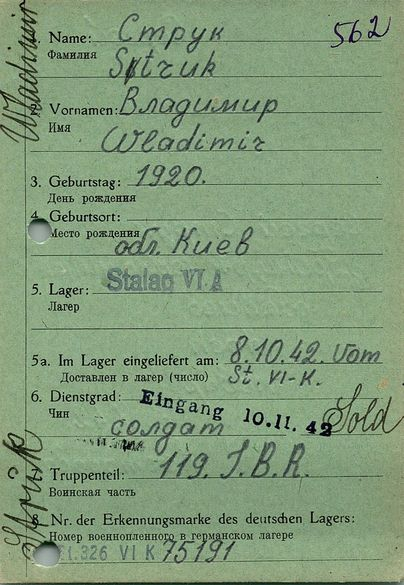 562
1. Name: Струк
Фамилия
Struk
Wladimir
2. Vornamen: Владимир
Имя
Wladimir
3. Geburtstag: 1920.
День рождения
4. Geburtsort:
Место рождения
обл. Киев
5. Lager: Stalag VI A
Лагер
5a. Im Lager eingeliefert am: 8.10.42. Vom
Доставлен в лагер (число) St. VI-K.
6. Dienstgrad: Eingang 10.11.42
Чин солдат Sold
Struk
Truppenteil: 119.
Воинская часть
8. Nr. der Erkennungsmarke des deutschen Lagers:
Номер военнопленного в германском лагере
St. 326 VI K 75191